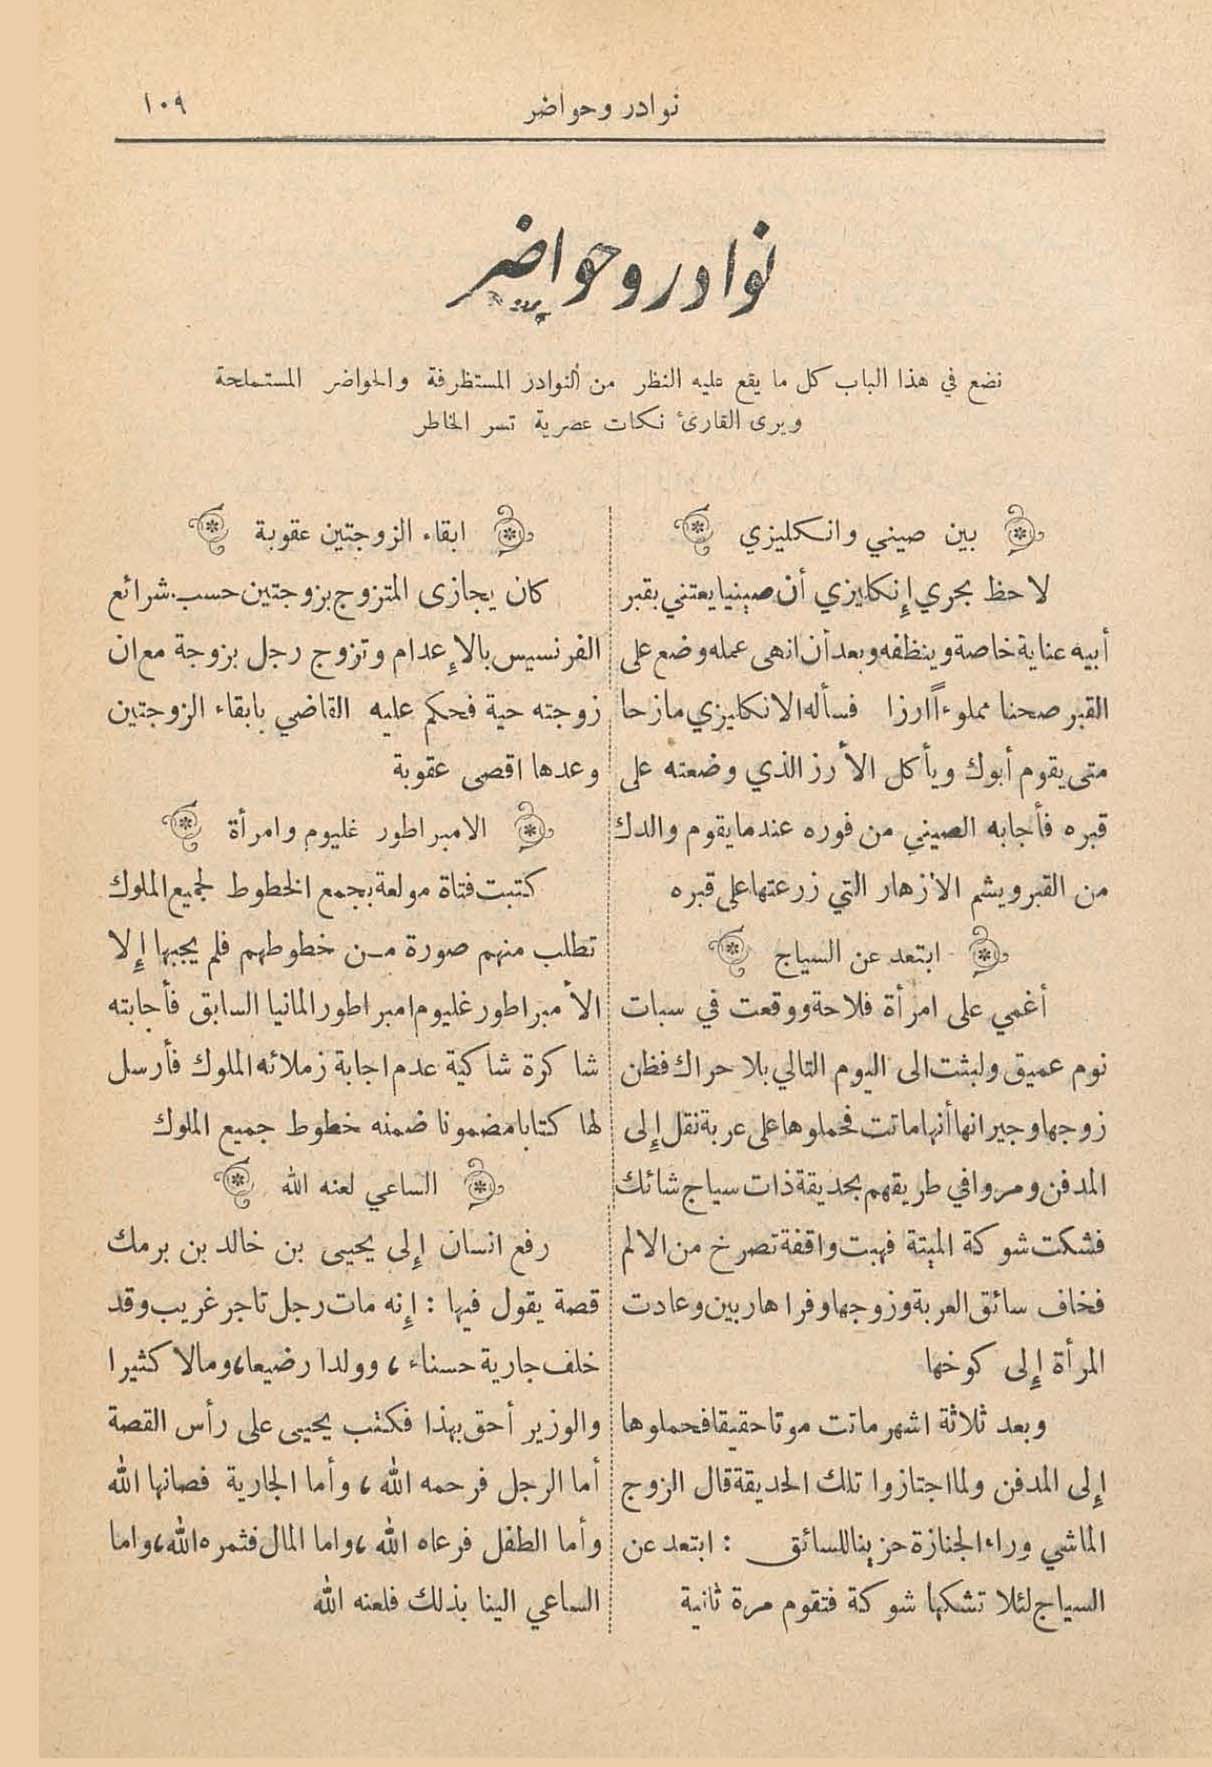 نوادر وحواضر
١٠٩
نوادر وحواضر
نضع في هذا الباب كل ما يقع عليه النظر من النوادر المستظرفة والحواضر المستملحة
ويرى القارئ نكات عصرية تسر الخاطر
بين صيني وانكليزي
لاحظ بحري إنكليزي أن صينيا يعتني بقبر
أبيه عناية خاصة وينظفه وبعد أن انهى عمله وضع على
القبر صحنا مملوءاً ارزا فسأله الانكليزي مازحا
متى يقوم أبوك ويأكل الأرز الذي وضعته على
قبره فأجابه الصيني من فوره عندما يقوم والدك
من القبر ويشم الازهار التي زرعتها على قبره
ابتعد عن السياج
أغمي على امرأة فلاحة ووقعت في سبات
نوم عميق ولبثت الى اليوم التالي بلا حراك فظن
زوجها وجيرانها أنها ماتت فحملوها على عربة نقل إلى
المدفن ومروا في طريقهم بحديقة ذات سياج شائك
فشكت شوكة الميتة فهبت واقفة تصرخ من الالم
فخاف سائق العربة وزوجها وفرا هاربين وعادت
المرأة إلى كوخها
وبعد ثلاثة اشهر ماتت موتا حقيقا فحملوها
إلى المدفن ولما اجتازوا تلك الحديقة قال الزوج
الماشي وراء الجنازة حزينا للسائق : ابتعد عن
السياج لئلا تشكها شوكة فتقوم مرة ثانية
ابقاء الزوجتين عقوبة
كان يجازى المتزوج بزوجتين حسب شرائع
الفرنسيس بالإعدام وتزوج رجل بزوجة مع ان
زوجته حية فحكم عليه القاضي بابقاء الزوجتين
وعدها اقصى عقوبة
الامبراطور غليوم وامرأة
كتبت فتاة مولعة بجمع الخطوط لجميع الملوك
تطلب منهم صورة من خطوطهم فلم يجبها إلا
الأمبراطور غليوم امبراطور المانيا السابق فأجابته
شاكرة شاكية عدم اجابة زملائه الملوك فأرسل
لها كتابا مضمونا ضمنه خطوط جميع الملوك
الساعي لعنه الله
رفع انسان إلى يحيى بن خالد بن برمك
قصة يقول فيها : إنه مات رجل تاجر غريب وقد
خلف جارية حسناء ، وولدا رضيعا، ومالا كثيرا
والوزير أحق بهذا فكتب يحيى على رأس القصة
أما الرجل فرحمه الله ، وأما الجارية فصانها الله
وأما الطفل فرعاه الله ، واما المال فثمره الله، واما
الساعي الينا بذلك فلعنه الله